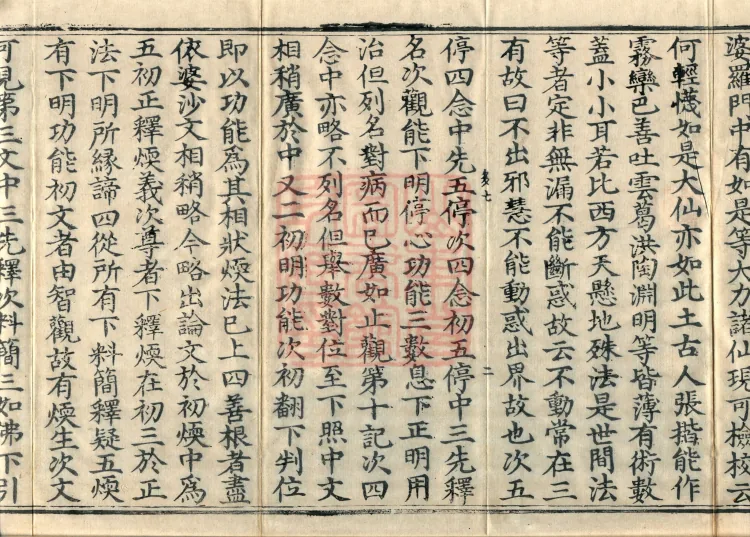 婆羅門中有如是等大力諸仙現可檢校云
何輕懱如是大仙亦如此土古人張揩能作
霧欒巴善吐雲葛洪陶淵明等皆薄有術數
蓋小小耳若比西方天懸地殊法是世間法
等者定非無漏不能斷惑故云不動常在三
有故曰不出邪慧不能動惑出界故也次五
停四念中先五停次四念初五停中三先釋
名次觀能下明停心功能三數息下正明用
治但列名對病而已廣如止觀第十記次四
念中亦略不列名但舉數對位至下照中文
相稍廣於中又二初明功能次初翻下判位
即以功能為其相狀煗法已上四善根者盡
依婆沙文相稍略今略出論文於初煗中為
五初正釋煗義次尊者下釋煗在初三於正
法下明所緣諦四從所有下料簡釋疑五煗
有下明功能初文者由智觀故有煗生次文
可見第三文中三先釋次料簡三如佛下引